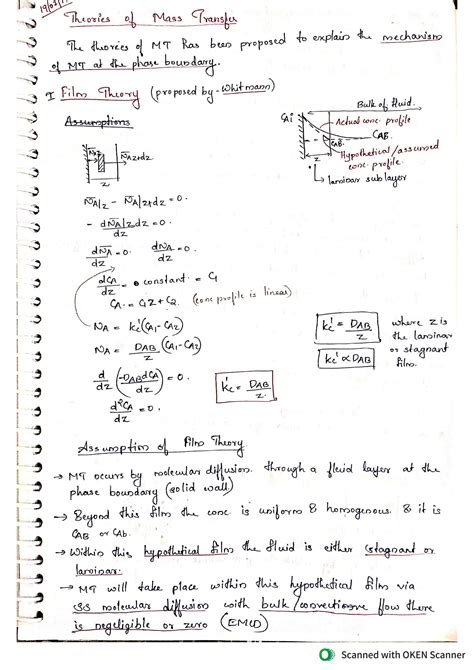 19/03/1
Theories of Mass Transfer
The theories of MT has been proposed to explain the mechanism
of MT at the phase boundary.
I Film Theory (proposed by - Whitmann)
Assumptions
Bulk of fluid.
CAi
Actual conc profile
CAB.
CAB
Hypothetical/assumed
conc. profile.
z
laminar sub layer
NAz
NAz+dz
z
NA|z - NA|z+dz = 0.
- dNA|z dz = 0.
dz
dNA = 0. dNA = 0.
dz dz
dCA = 0 constant = C1
dz
CA = C1Z + C2. (conc profile is linear)
NA = kc'(CA1 - CA2)
NA = DAB (CA1 - CA2)
z
kc' = DAB
z
where z is
the laminar
or stagnant
film.
kc' ∝ DAB
d (-DAB dCA) = 0.
dz dz
kc' = DAB
z
d²CA = 0.
dz
Assumption of Film Theory
→ MT occurs by molecular diffusion through a fluid layer at the
phase boundary (solid wall)
→ Beyond this film the conc is uniform & homogenous. & it is
CAB or CAb.
→ Within this hypothetical film the fluid is either stagnant or
laminar.
→ MT will take place within this hypothetical film via
molecular diffusion with bulk/convective flow there
is negligible or zero (EMCD)
Scanned with OKEN Scanner